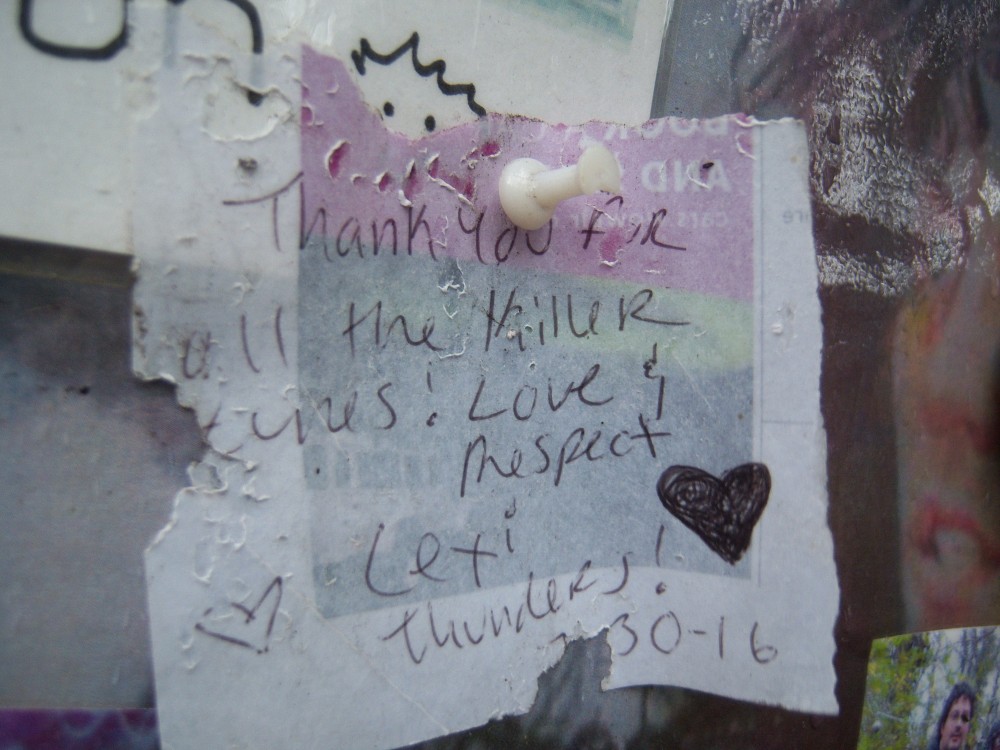 on
Thank you for
all the killer
tunes! Love &
Respect
Lexi
thunders!
30-16
BOOK A
AND